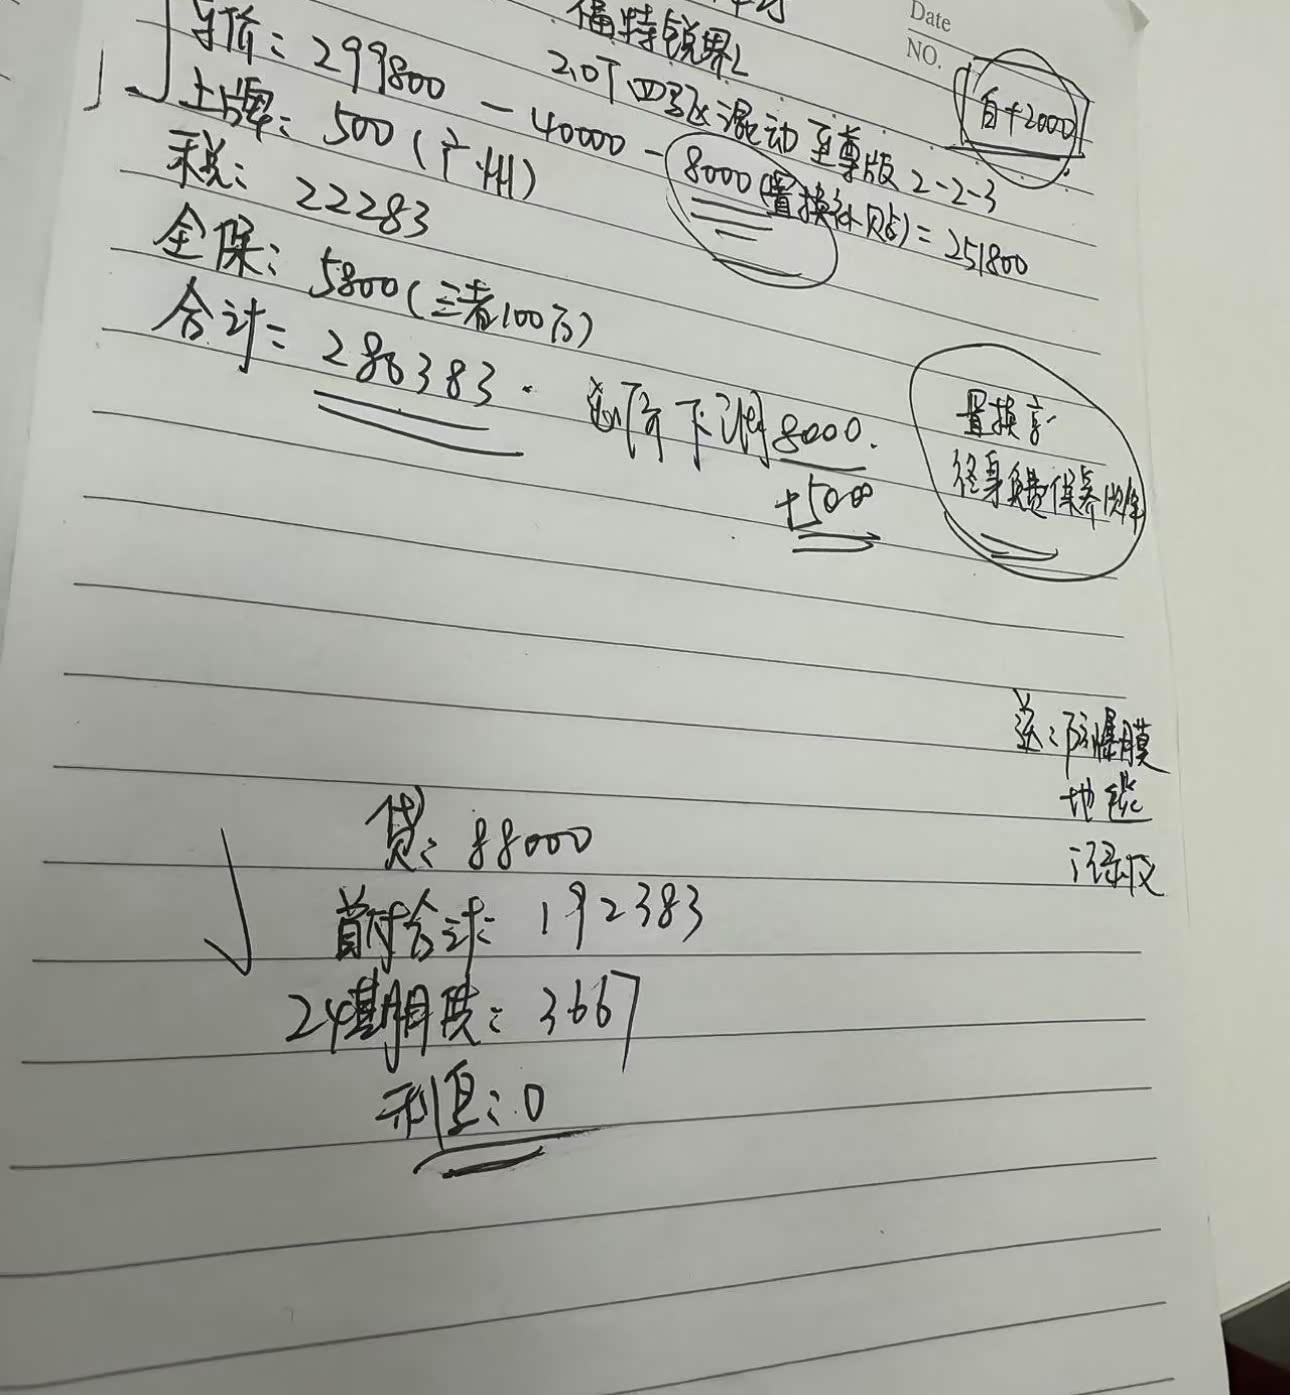 Date
NO.
福特锐界L
2.0T 四驱混动 至尊版 2-2-3
白+2000
车价：299800 - 40000 - 8000(置换补贴) = 251800
上牌：500(广州)
税：22283
全保：5800(三者100万)
合计：280383.
下调8000.
+5000
置换享
终身免费保养
送：防爆膜
地毯
绿板
贷：88000
首付合计：192383
24期月供：3667
利息：0